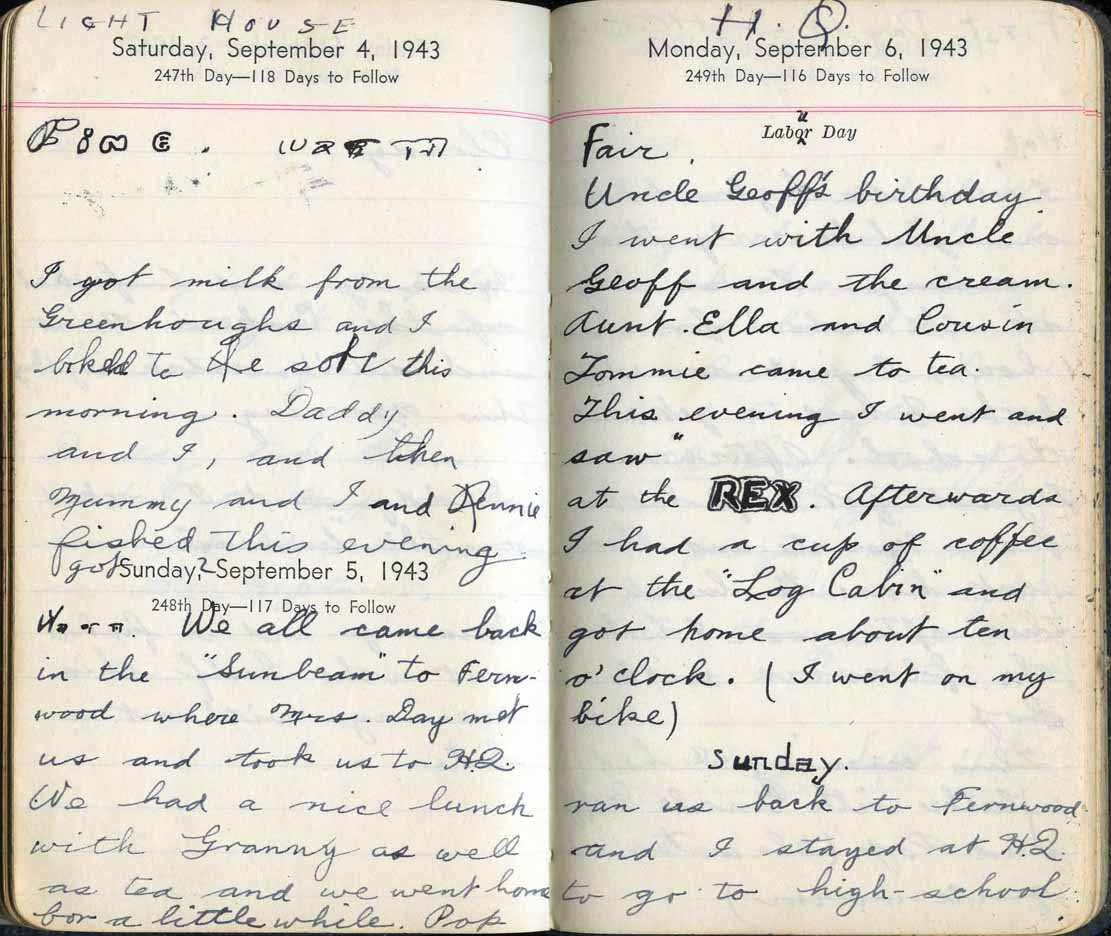 LIGHT HOUSE
Saturday, September 4, 1943
247th Day—118 Days to Follow
I got milk from the
Greenhoughs and I
to the this
morning. Daddy
and I, and then
Mummy and I and Rennie
fished this evening.
got 2
Sunday, September 5, 1943
248th Day—117 Days to Follow
We all came back
in the "Sunbeam" to Fern-
wood where Mrs. Day met
us and took us to H.Q.
We had a nice lunch
with Granny as well
as tea and we went home
for a little while. Pop
H. Q.
Monday, September 6, 1943
249th Day—116 Days to Follow
u
Labor Day
Fair.
Uncle Geoff's birthday.
I went with Uncle
Geoff and the cream.
Aunt Ella and Cousin
Tommie came to tea.
This evening I went and
saw "
at the REX. Afterwards
I had a cup of coffee
at the "Log Cabin" and
got home about ten
o'clock. (I went on my
bike)
Sunday.
ran us back to Fernwood
and I stayed at H.Q.
to go to high-school.